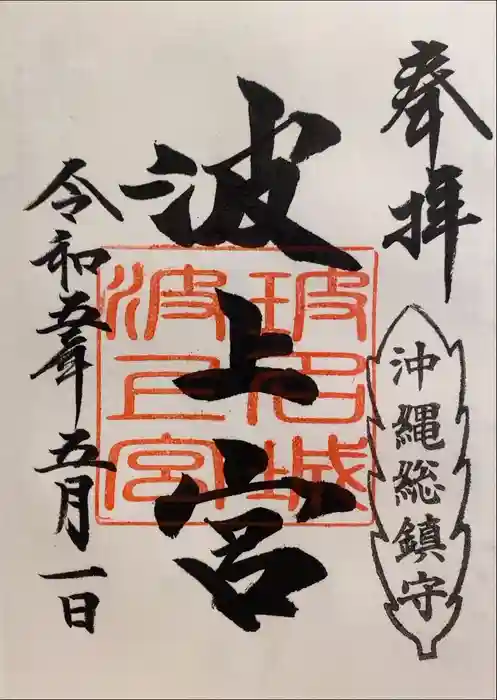 奉拝
沖縄総鎮守
波上宮
玻名城
波上宮
令和五年五月一日